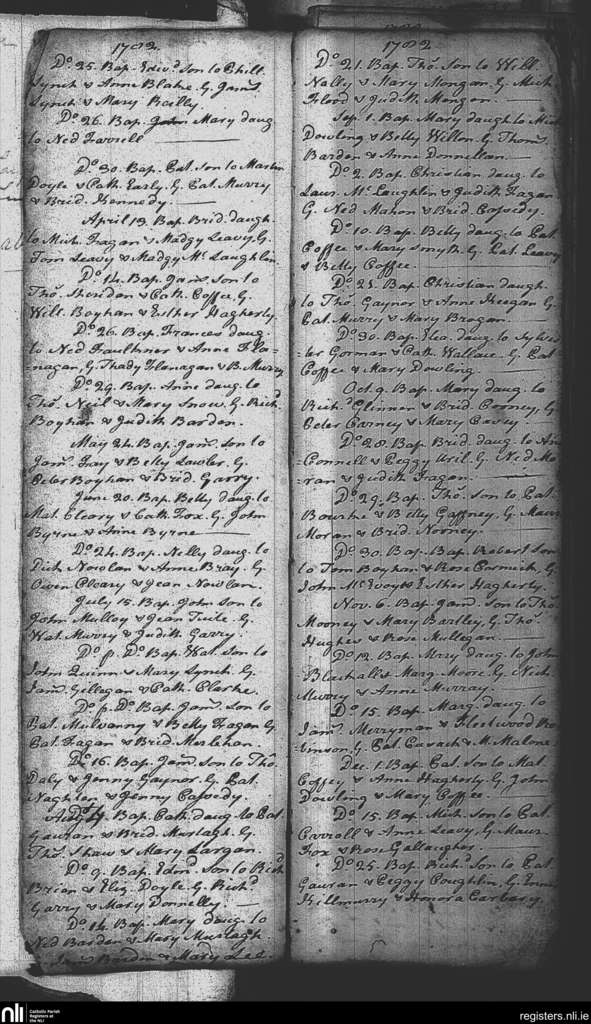 1782.
Do. 25. Bap. Edwd. Son to Phill.
Lynch & Anne Blake. G. Jams.
Lynch & Mary Reilly.
Do. 26. Bap. John Mary daug
to Ned Farrell
Do. 30. Bap. Pat. Son to Martin
Doyle & Cath. Early. G. Pat. Murry
& Brid. Kennedy.
April 13. Bap. Brid. daugh.
to Mich. Fagan & Madgy Leavy. G.
Tom Leavy & Madgy Mc. Laughlin.
Do. 14. Bap. Jams. Son to
Tho. Sheridan & Cath. Coffee. G.
Will. Boyhan & Esther Hagherly.
Do. 26. Bap. Frances daug.
to Ned Faulkner & Anne Fla=
=nagan, G. Thady Flanagan & B. Murry
Do. 29. Bap. Anne daug. to
Tho. Neil & Mary Snow. G. Richd.
Boyhan & Judith Barden.
May 24. Bap. Jams. Son to
Jams. Fay & Betty Lawler. G.
Peter Boyhan & Brid. Garry.
June 20. Bap. Betty daug. to
Mat. Cleary & Cath. Fox. G. John
Byrne & Anne Byrne
Do. 24. Bap. Nelly daug. to
Dick Nowlan & Anne Bray. G.
Owen Cleary & Jean Nowlan.
July 15. Bap. John Son to
John Mulloy & Jean Tuite. G.
Wat. Murry & Judith Garry.
Do. p. Do. Bap. Wat. Son to
John Quinn & Mary Lynch. G.
Jams. Gillegan & Cath. Clarke.
Do. p. Do. Bap. Jams. Son to
Pat. Mulvanny & Betty Fagan G.
Pat. Fagan & Brid.
Do. 16. Bap. Jams. Son to Tho.
Daly & Jenny Gaynor. G. Pat.
& Jenny Casedy.
Bap. Cath. daug. to Pat.
Gauran & Brid. Murtagh. G.
Tho. Shaw & Mary Largan.
Do. 9. Bap. Edmd. Son to Richd
Brian & Eliz. Doyle. G. Richd.
Garry & Mary Donnelly.
Do. 14. Bap. Mary daug. to
Ned Barden & Mary Murtagh.
Jams. Barden & Mary Lee.
1782
Do. 21. Bap. Tho. Son to Will.
Nally & Mary Mongan. G. Mich.
Flood & Judith Mongan.
Sep. 1. Bap. Mary daugh. to Mich
Dowling & Betty Willon. G. Thoms.
Barden & Anne Donnellan
Do. 2. Bap. Christian daug. to
Laur. Mc. Laughlin & Judith Fagan
G. Ned Mahon & Brid. Casedy.
Do. 10. Bap. Betty daug. to Pat.
Coffee & Mary Smyth. G. Pat. Leavy
& Betty Coffee.
Do. 25. Bap. Christian daugh.
to Tho. Gaynor & Anne Keegan G.
Pat. Murry & Mary Brogan.
Do. 30. Bap. Elea. daug. to Sylves
ter Gorman & Cath. Wallace. G. Pat.
Coffee & Mary Dowling
Oct. 9. Bap. Mary daug. to
Richd. Glinner & Brid. Corney, G.
Peter Carney & Mary Cavey.
Do. 28. Bap. Brid. daug. to An
Connell & Peggy Uril. G. Ned Mo
ran & Judith Fagan.
Do. 29. Bap. Tho. Son to Pat.
Bourke & Betty Gaffney. G. Maur.
Moran & Brid. Nooney.
Do. 30. Bap. Bap. Robert Son
to Tom Boyhan & Rose Cormick. G.
John McEvoy & Esther Hagherly.
Nov. 6. Bap. Jams. Son to Tho.
Mooney & Mary Bartley, G. Tho.
Hughes & Rose Mullegan.
Do. 12. Bap. Mary daug. to John
Blackall & Marg. Moore. G. Nich.
Murry & Annie Murray.
Do. 15. Bap. Marg. daug. to
Jams. Merryman & Fleetwood Ro
binson, G. Pat. Cavach & M. Malone.
Dec. 1. Bap. Pat. Son to Mat.
Coffey & Anne Hagherly. G. John
Dowling & Mary Coffee.
Do. 15. Bap. Mich. Son to Pat.
Carroll & Anne Leavy, G. Maur.
Fox & Rose Gallaugher.
Do. 25. Bap. Richd. Son to Pat
Gauran & Peggy Coughlin, G.
Kilmurry & Honora Carbary.
nli
Catholic Parish
Registers at
the NLI
registers.nli.ie